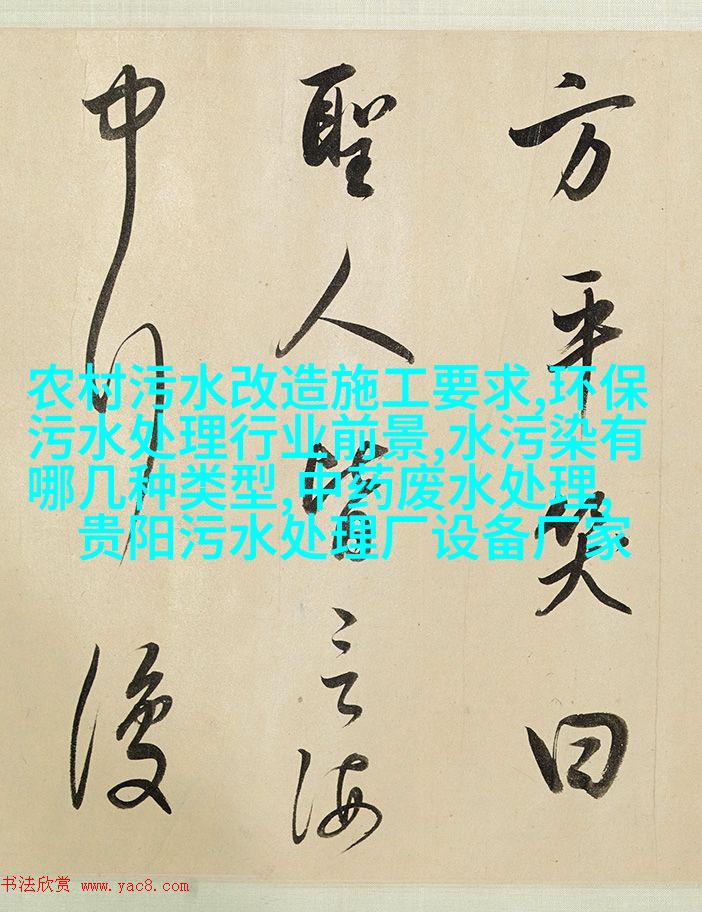 方平笑曰
聖人皆言海
中行復
农村污水改造施工要求,环保
污水处理行业前景,水污染有
哪几种类型,中药废水处理,
贵阳污水处理厂设备厂家
书法欣赏 www.yac8.com